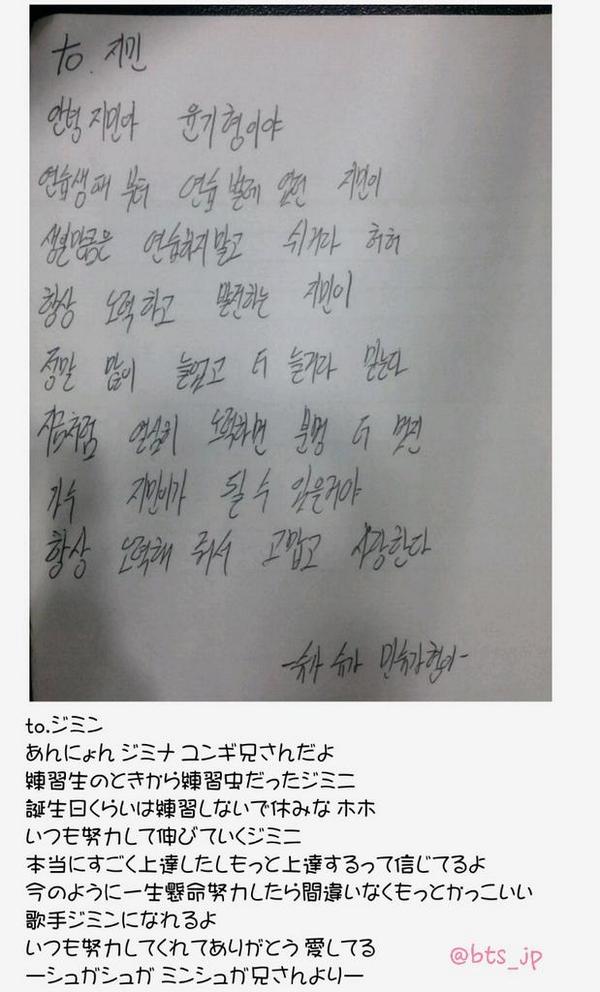 to. 지민
안녕 지민아 윤기형이야
연습생때 부터 연습 벌레 였던 지민이
생일만큼은 연습하지말고 쉬거라 허허
항상 노력하고 발전하는 지민이
정말 많이 늘었고 더 늘거라 믿는다
지금처럼 열심히 노력하면 분명 더 멋진
가수 지민이가 될 수 있을거야
항상 노력해 줘서 고맙고 사랑한다
-슈가 슈가 민슈가형이-
to.ジミン
あんにょん ジミナ ユンギ兄さんだよ
練習生のときから練習虫だったジミニ
誕生日くらいは練習しないで休みな ホホ
いつも努力して伸びていくジミニ
本当にすごく上達したしもっと上達するって信じてるよ
今のように一生懸命努力したら間違いなくもっとかっこいい
歌手ジミンになれるよ
いつも努力してくれてありがとう 愛してる
ーシュガシュガ ミンシュガ兄さんよりー
@bts_jp